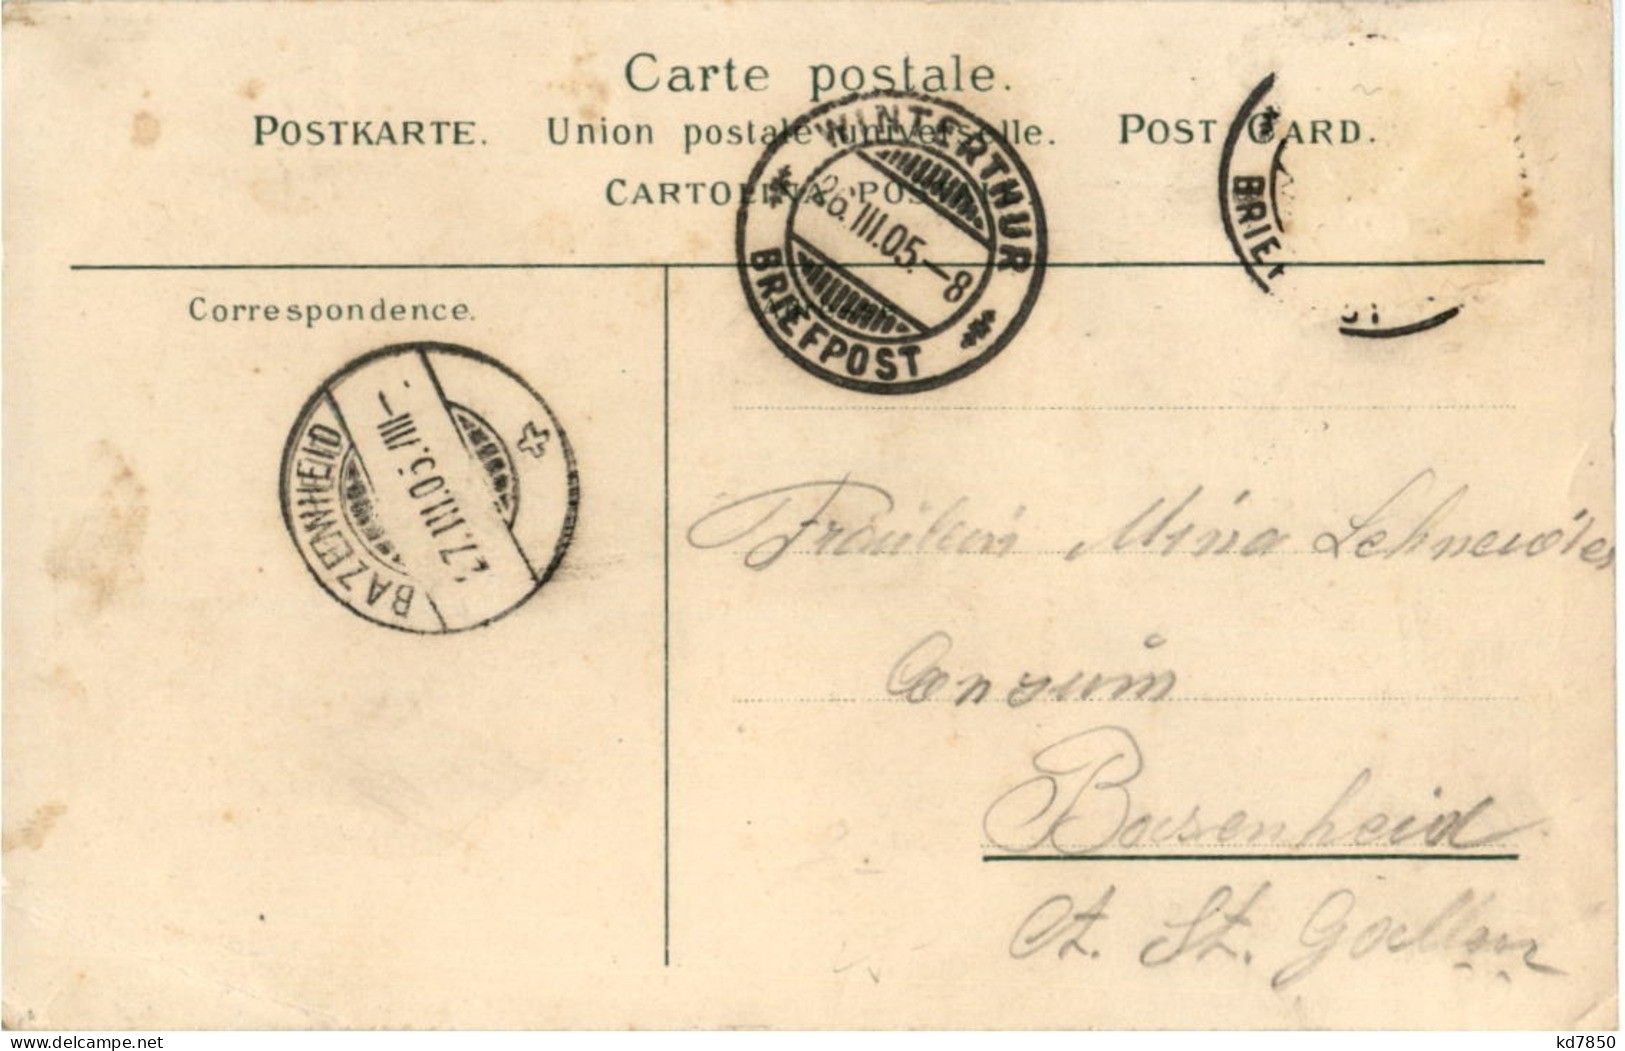 Carte postale.
POSTKARTE. Union postale universelle. POST CARD.
CARTOLINA POS
WINTERTHUR
26.III.05.–8
BRIEFPOST
BRIEF
Correspondence.
BAZENHEID
27.III.05.
Fräulein Mina Schneider
Consum
Bazenheid
Ct. St. Gallen
delcampe.net
kd7850